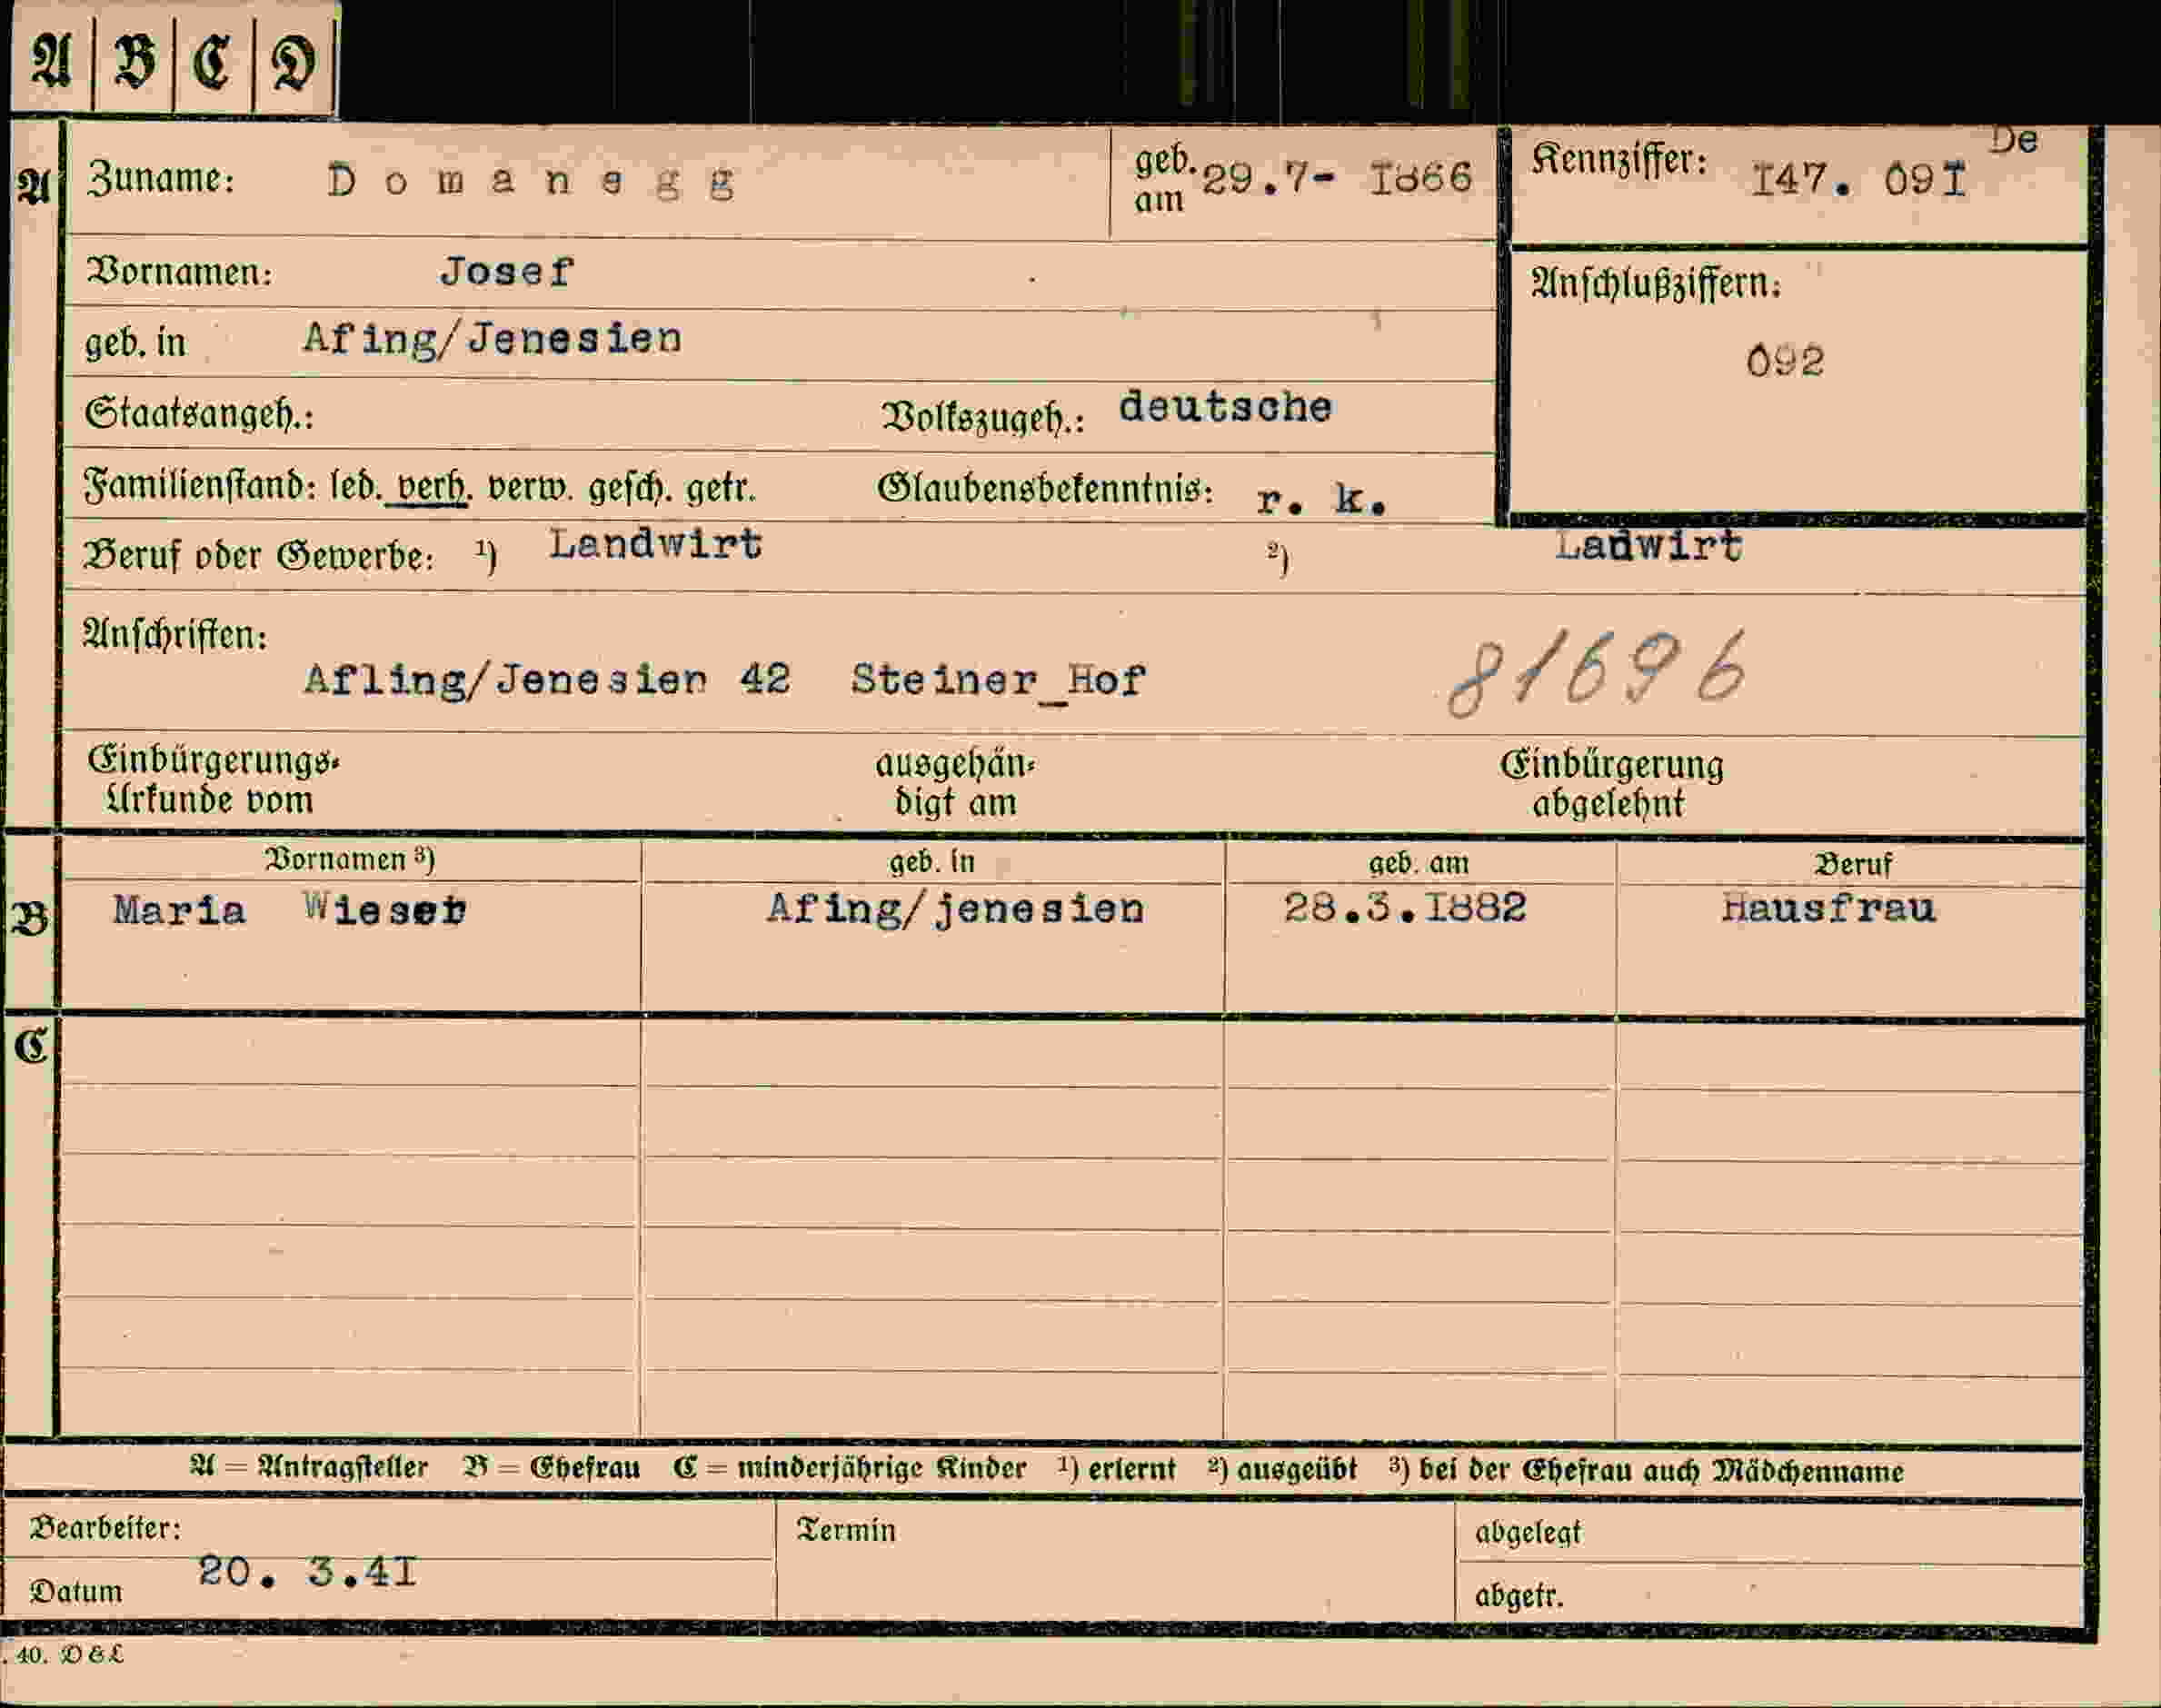 A B C D
De
A Zuname: Domanegg geb. am 29.7- I866 Kennziffer: I47. 09I
Vornamen: Josef Anschlußziffern:
geb. in Afing/Jenesien 092
Staatsangeh.: Volkszugeh.: deutsche
Familienstand: led. verh. verw. gesch. getr. Glaubensbekenntnis: r. k.
Beruf oder Gewerbe: 1) Landwirt 2) Ladwirt
Anschriften: 81696
Afling/Jenesien 42 Steiner_Hof
Einbürgerungs- ausgehän- Einbürgerung
Urkunde vom digt am abgelehnt
Vornamen 3) geb. in geb. am Beruf
B Maria Wieser Afing/jenesien 28.3.I882 Hausfrau
C
A = Antragsteller B = Ehefrau C = minderjährige Kinder 1) erlernt 2) ausgeübt 3) bei der Ehefrau auch Mädchenname
Bearbeiter: Termin abgelegt
Datum 20. 3.4I abgetr.
. 40. D & L